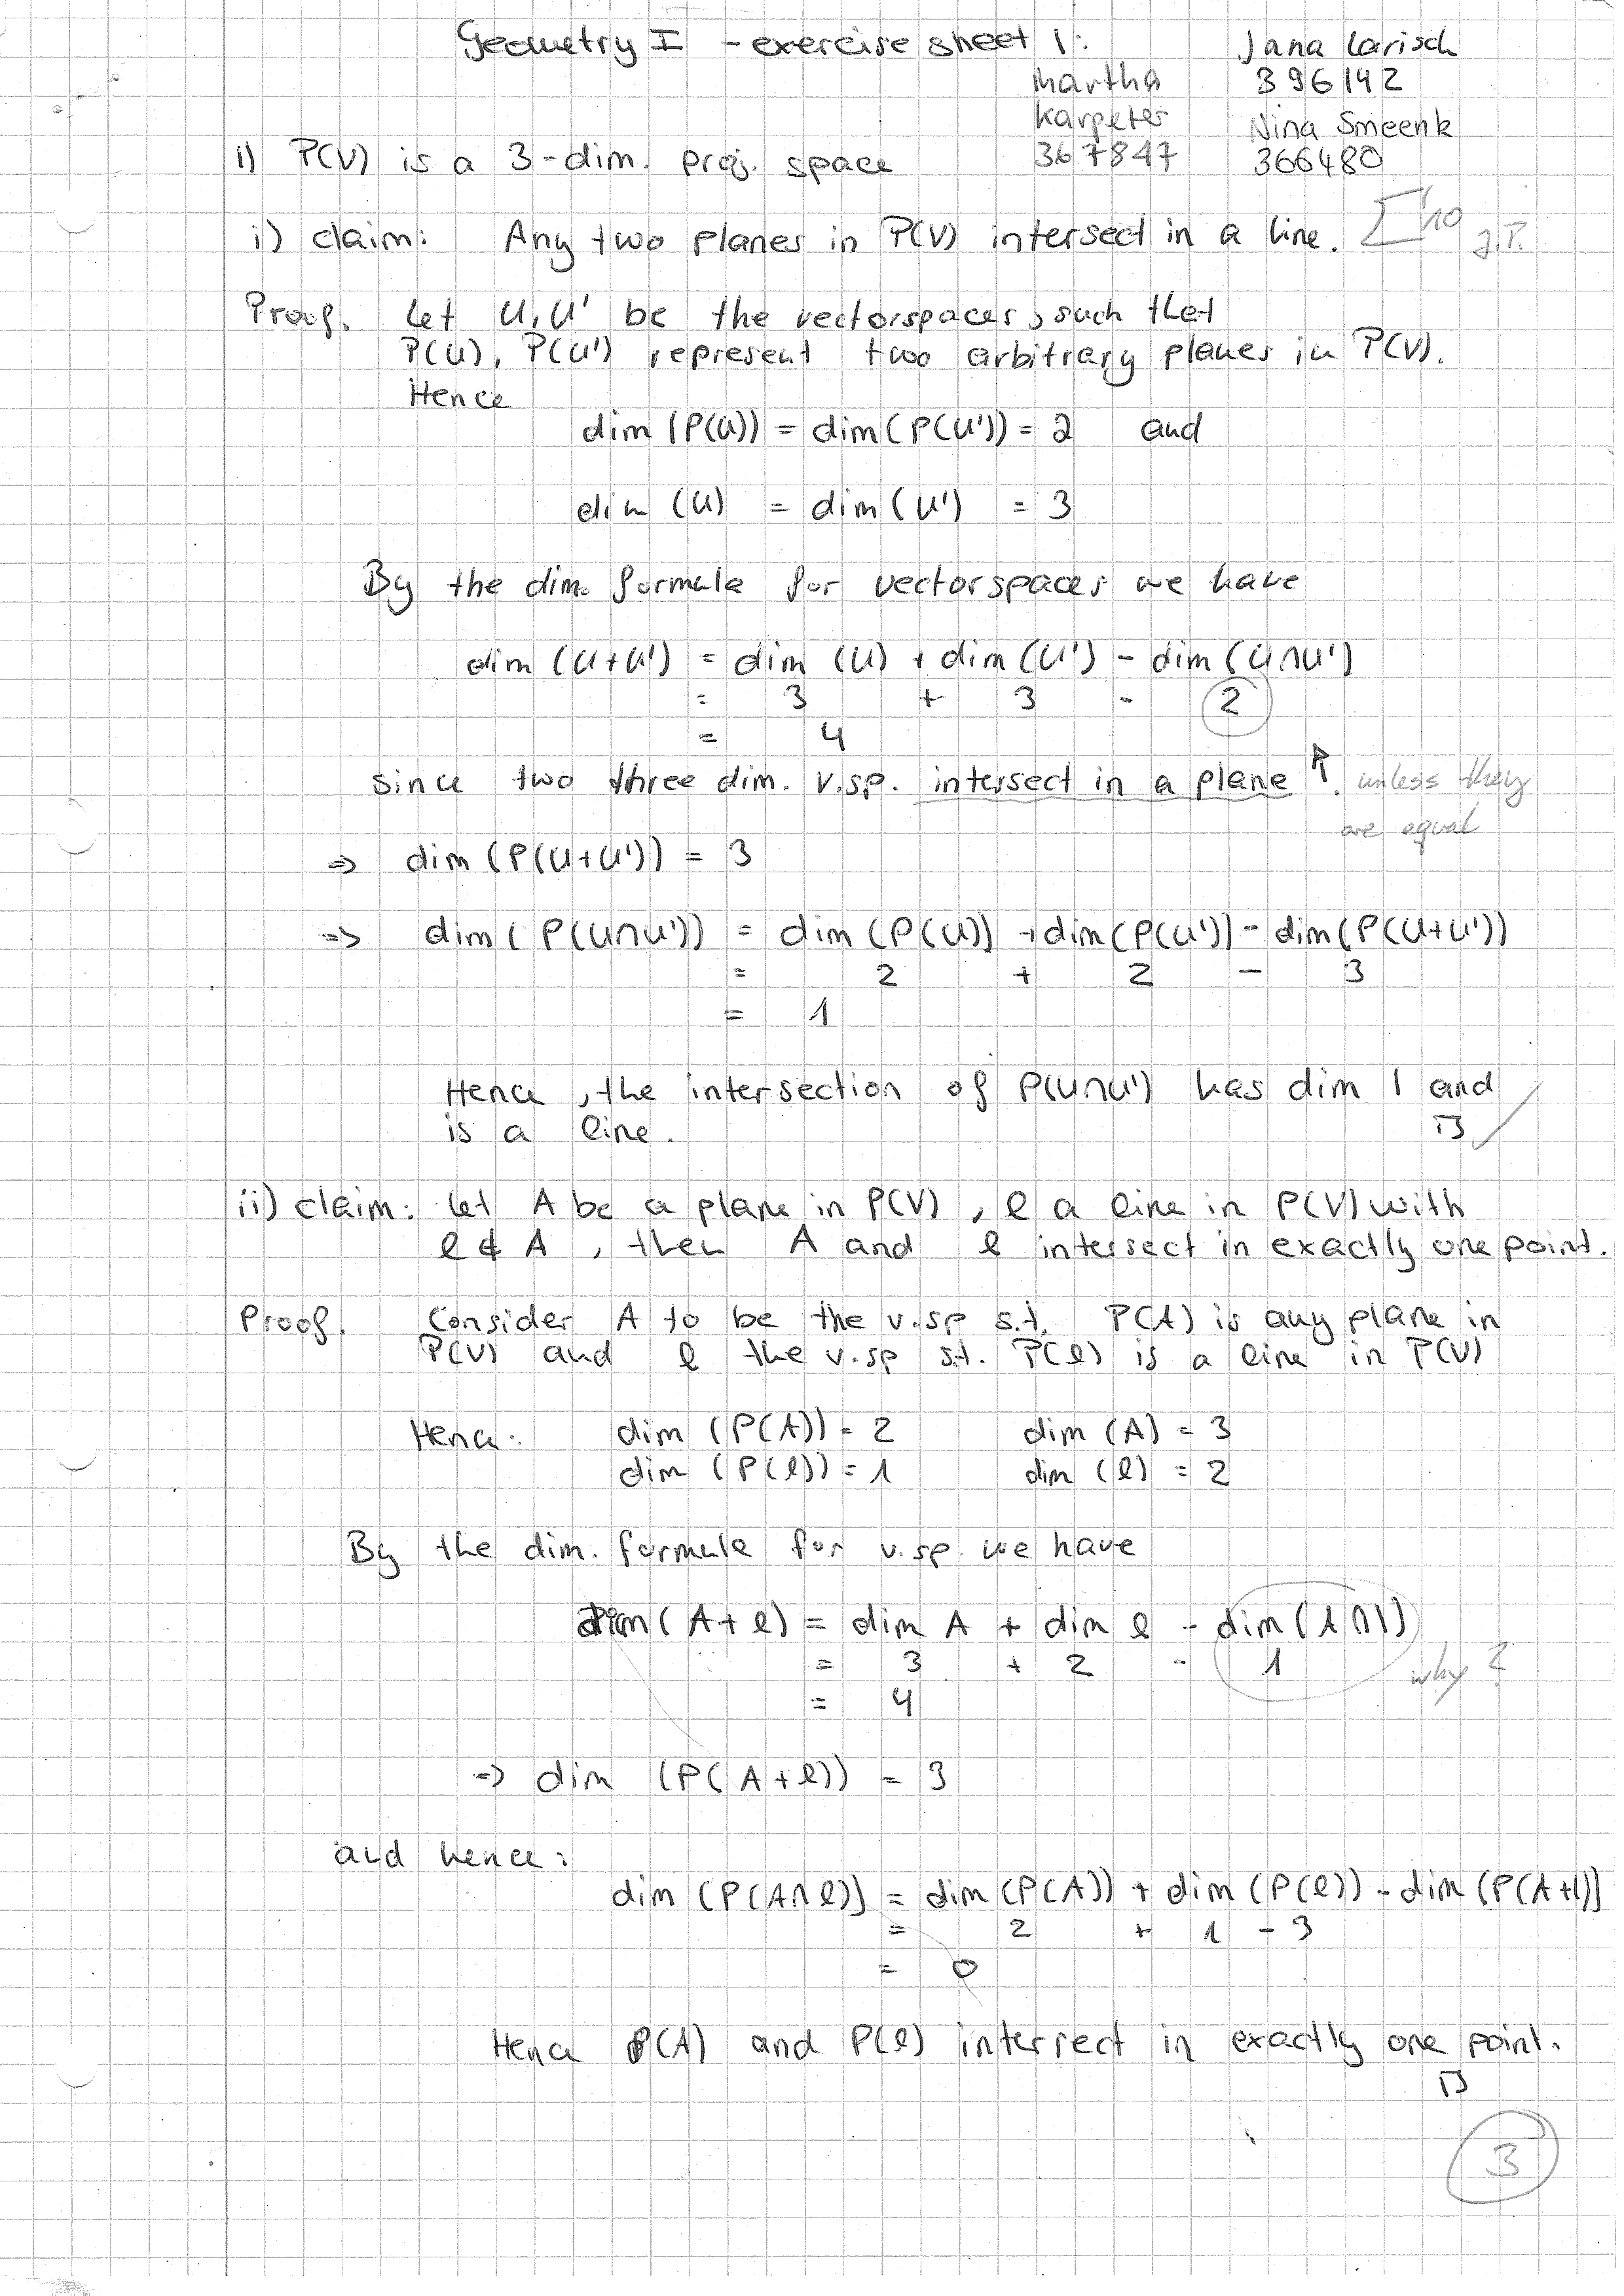 Geometry I - exercise sheet 1: Jana Larisch
Martha 396142
Karpeter Nina Smeenk
367847 366480
1) P(V) is a 3-dim. proj. space
i) claim: Any two planes in P(V) intersect in a line. Σ 10
Proof. Let U, U' be the vectorspaces, such that
P(U), P(U') represent two arbitrary planes in P(V).
Hence
dim (P(U)) = dim (P(U')) = 2 and
dim (U) = dim (U') = 3
By the dim. formula for vectorspaces we have
dim (U+U') = dim (U) + dim (U') - dim (U∩U')
= 3 + 3 - 2
= 4
since two three dim. v.sp. intersect in a plane. unless they
are equal
=> dim (P(U+U')) = 3
=> dim (P(U∩U')) = dim (P(U)) + dim (P(U')) - dim (P(U+U'))
= 2 + 2 - 3
= 1
Hence, the intersection of P(U∩U') has dim 1 and
is a line. □ ✓
ii) claim: Let A be a plane in P(V), l a line in P(V) with
l ⊄ A, then A and l intersect in exactly one point.
Proof. Consider A to be the v.sp s.t. P(A) is any plane in
P(V) and l the v.sp s.t. P(l) is a line in P(V)
Hence: dim (P(A)) = 2 dim (A) = 3
dim (P(l)) = 1 dim (l) = 2
By the dim. formula for v.sp. we have
dim (A+l) = dim A + dim l - dim (A∩l)
= 3 + 2 - 1 why?
= 4
=> dim (P(A+l)) = 3
and hence:
dim (P(A∩l)) = dim (P(A)) + dim (P(l)) - dim (P(A+l))
= 2 + 1 - 3
= 0
Hence P(A) and P(l) intersect in exactly one point.
□
3